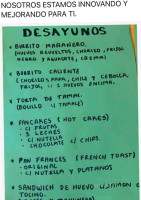 NOSOTROS ESTAMOS INNOVANDO Y
MEJORANDO PARA TI.
DESAYUNOS
• BURRITO MAÑANERO.
(HUEVOS REVUELTOS, CHORIZO, FRIJOL
NEGRO Y AGUACATE, CREMA)
• BURRITO CALIENTE
(CHORIZO Y PAPA, CHILE Y CEBOLLA,
FRIJOL, Y 2 HUEVOS ENCIMA.
• TORTA DE TAMAL.
(BOLILLO Y TAMALE)
• PANCAKES (HOT CAKES)
- C/ FRUTAS
- 3 LECHES
- C/ NUTELLA
CHOCOLATE C/ CHIPS.
• PAN FRANCES (FRENCH TOAST)
- ORIGINAL
- C/ NUTELLA Y PLATANOS
• SANDWICH DE HUEVO C/JAMON O
TOCINO.